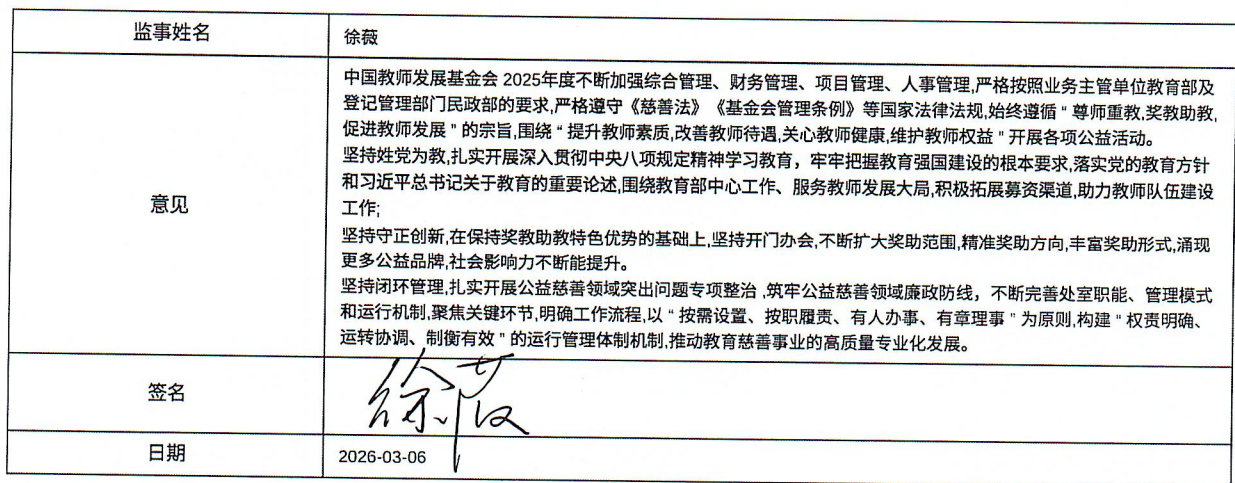 监事姓名
徐薇
意见
中国教师发展基金会 2025年度不断加强综合管理、财务管理、项目管理、人事管理,严格按照业务主管单位教育部及
登记管理部门民政部的要求,严格遵守《慈善法》《基金会管理条例》等国家法律法规,始终遵循 " 尊师重教,奖教助教,
促进教师发展 " 的宗旨,围绕 " 提升教师素质,改善教师待遇,关心教师健康,维护教师权益 " 开展各项公益活动。
坚持姓党为教,扎实开展深入贯彻中央八项规定精神学习教育，牢牢把握教育强国建设的根本要求,落实党的教育方针
和习近平总书记关于教育的重要论述,围绕教育部中心工作、服务教师发展大局,积极拓展募资渠道,助力教师队伍建设
工作;
坚持守正创新,在保持奖教助教特色优势的基础上,坚持开门办会,不断扩大奖助范围,精准奖助方向,丰富奖助形式,涌现
更多公益品牌,社会影响力不断能提升。
坚持闭环管理,扎实开展公益慈善领域突出问题专项整治 ,筑牢公益慈善领域廉政防线，不断完善处室职能、管理模式
和运行机制,聚焦关键环节,明确工作流程,以 " 按需设置、按职履责、有人办事、有章理事 " 为原则,构建 " 权责明确、
运转协调、制衡有效 " 的运行管理体制机制,推动教育慈善事业的高质量专业化发展。
签名
徐薇
日期
2026-03-06